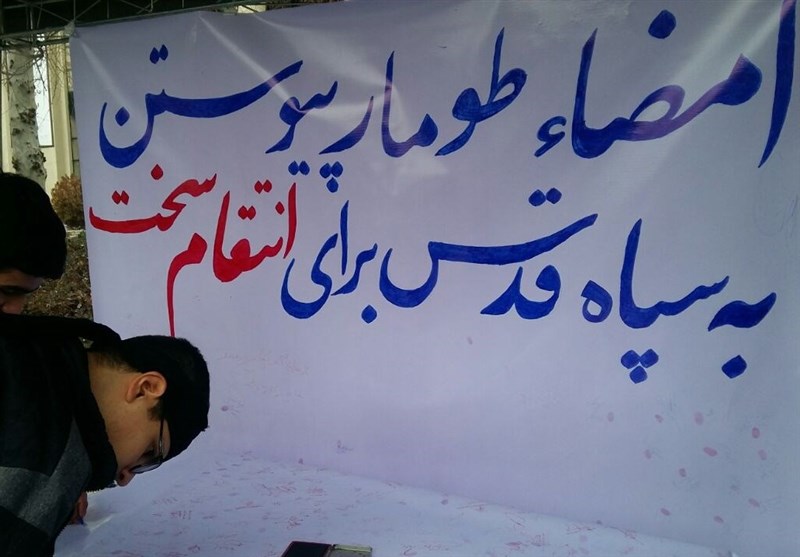 امضاء طومار پیوستن
به سپاه قدس برای انتقام سخت